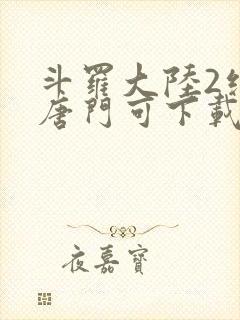 斗羅大陸2
唐門可下載
夜嘉寶